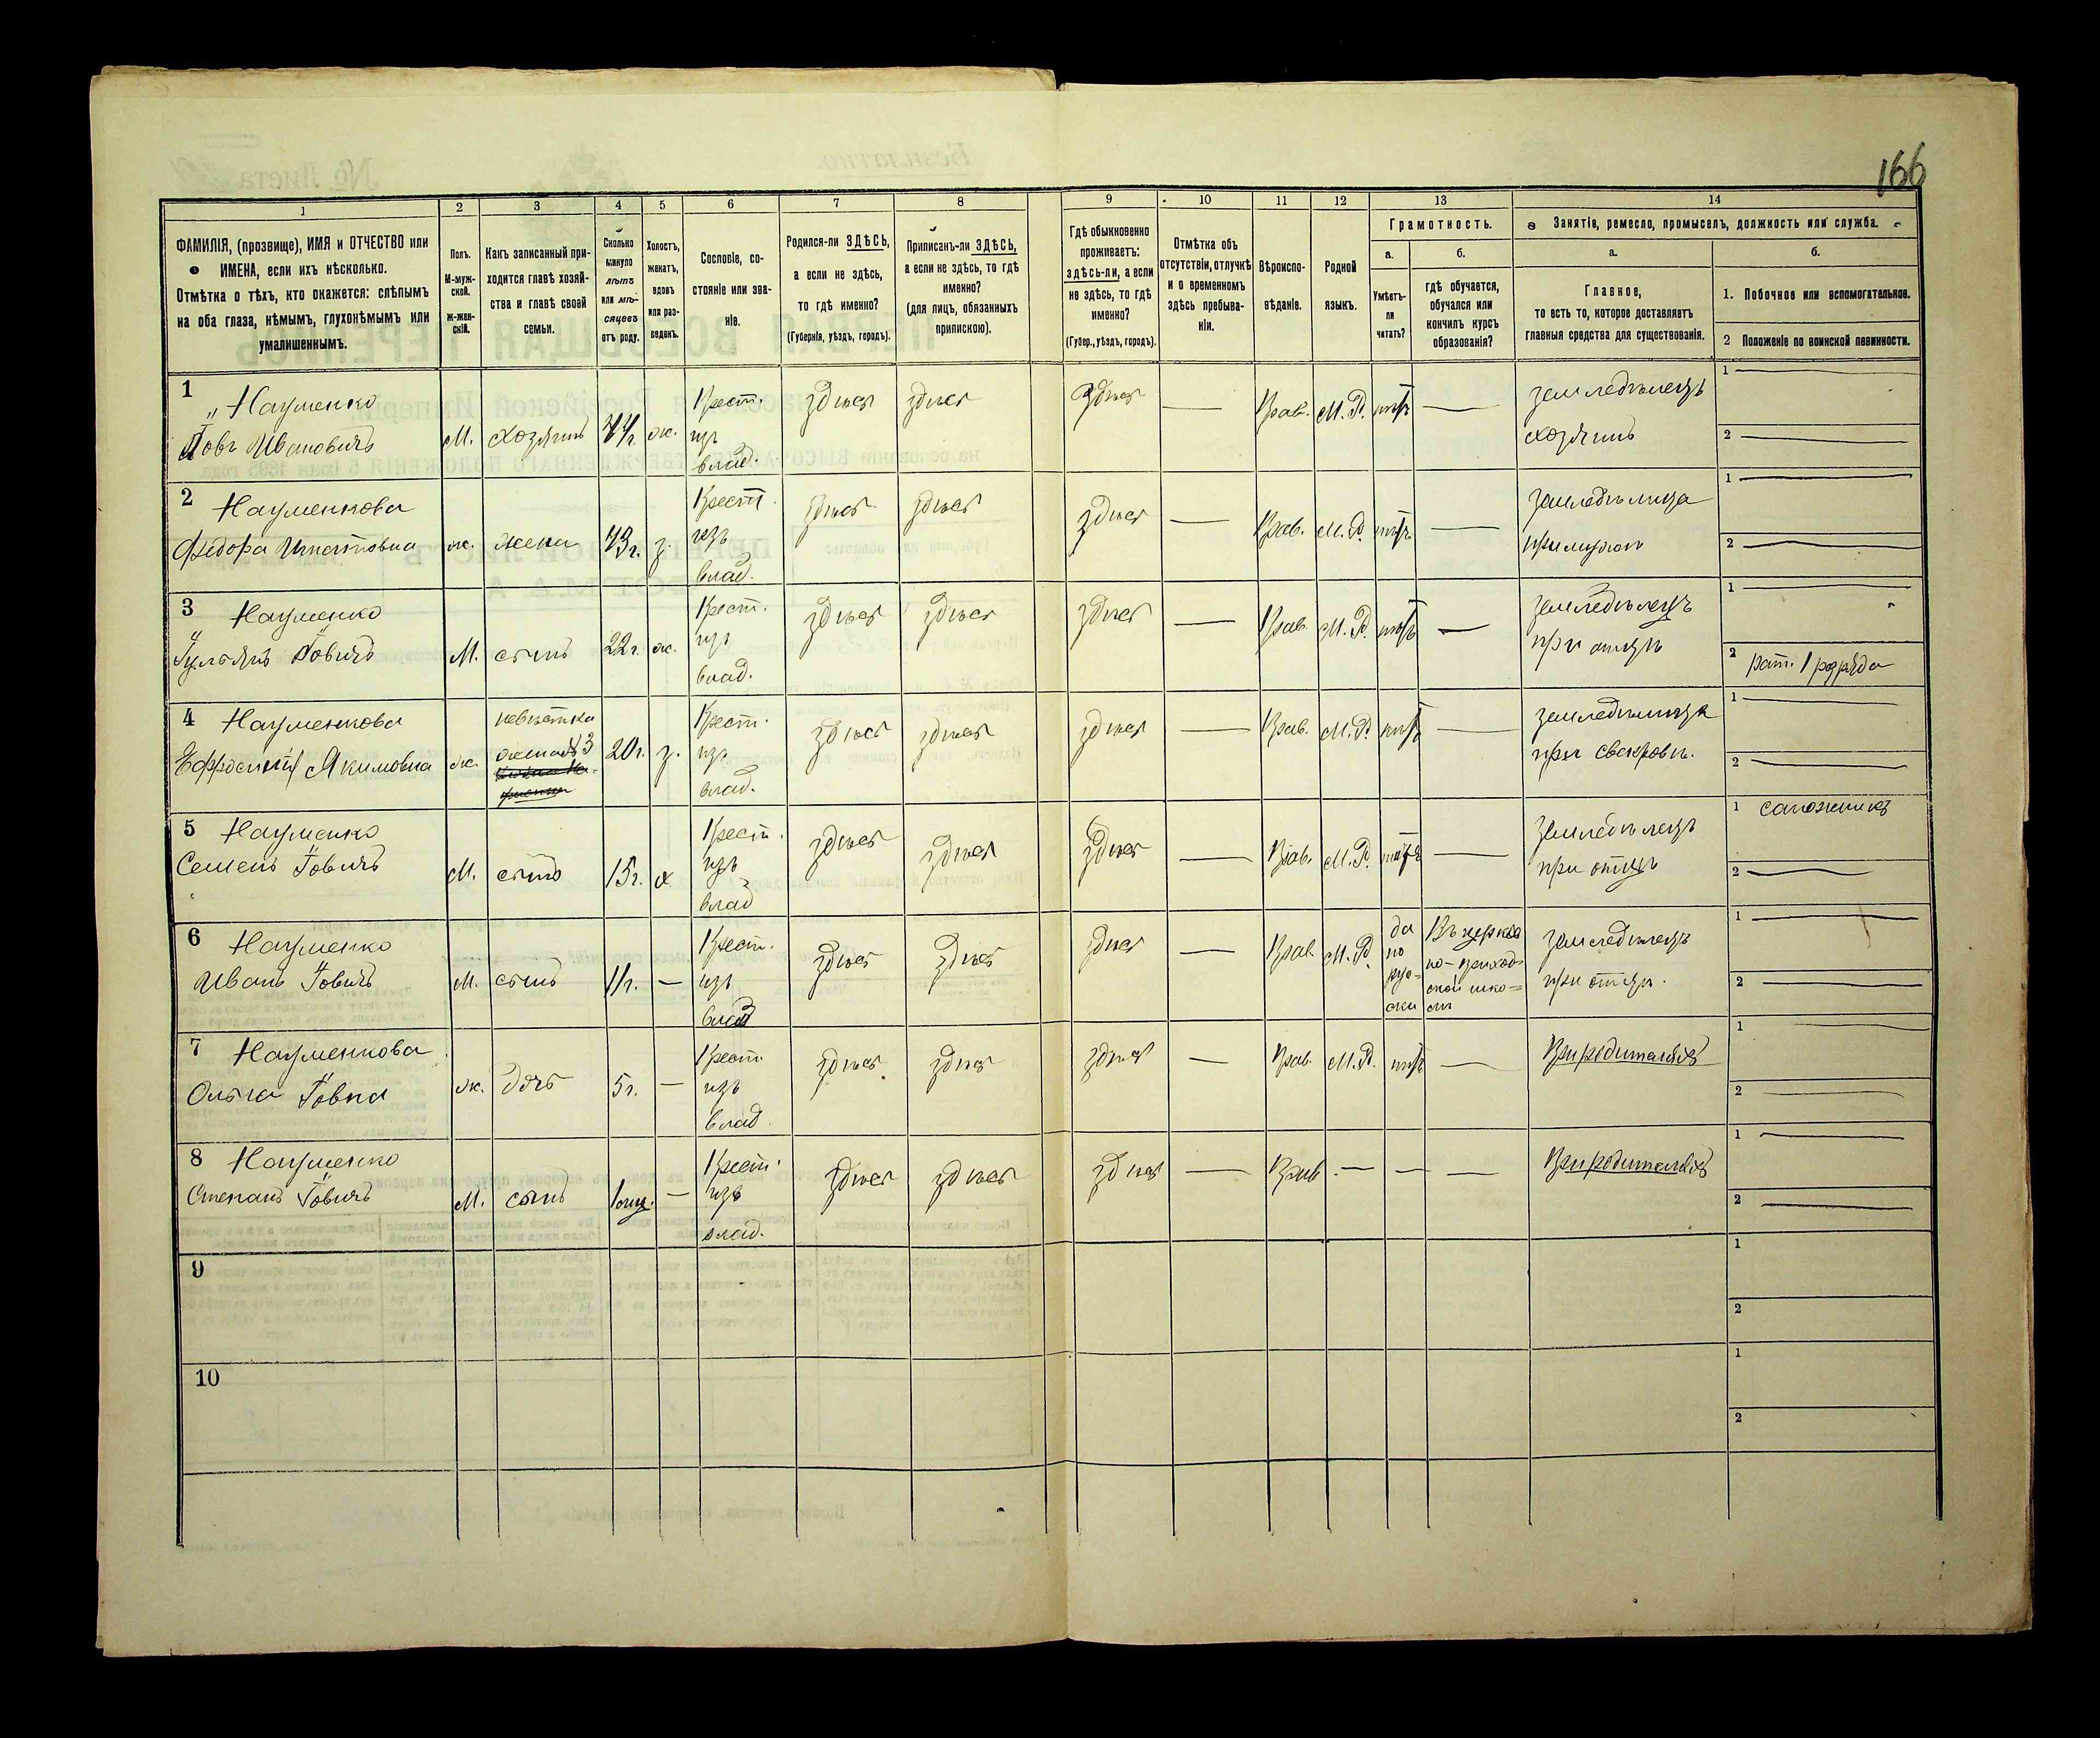 166
1 2 3 4 5 6 7 8 9 10 11 12 13 14
ФАМИЛІЯ, (прозвище), ИМЯ и ОТЧЕСТВО или
ИМЕНА, если ихъ нѣсколько.
Отмѣтка о тѣхъ, кто окажется: слѣпымъ
на оба глаза, нѣмымъ, глухонѣмымъ или
умалишеннымъ.
Полъ.
М-муж-
ской.
ж-жен-
скій.
Какъ записанный при-
ходится главѣ хозяй-
ства и главѣ своей
семьи.
Сколько
минуло
лѣтъ
или мѣ-
сяцевъ
отъ роду.
Холостъ,
женатъ,
вдовъ
или раз-
веденъ.
Сословіе, со-
стояніе или зва-
ніе.
Родился-ли ЗДѢСЬ,
а если не здѣсь,
то гдѣ именно?
(Губернія, уѣздъ, городъ).
Приписанъ-ли ЗДѢСЬ,
а если не здѣсь, то гдѣ
именно?
(для лицъ, обязанныхъ
припискою).
Гдѣ обыкновенно
проживаетъ:
здѣсь-ли, а если
не здѣсь, то гдѣ
именно?
(Губер., уѣздъ, городъ).
Отмѣтка объ
отсутствіи, отлучкѣ
и о временномъ
здѣсь пребыва-
ніи.
Вѣроиспо-
вѣданіе.
Родной
языкъ.
Грамотность.
а.
Умѣетъ-
ли
читать?
б.
гдѣ обучается,
обучался или
кончилъ курсъ
образованія?
Занятія, ремесло, промыселъ, должность или служба.
а.
Главное,
то есть то, которое доставляетъ
главныя средства для существованія.
б.
1. Побочное или вспомогательное.
2 Положеніе по воинской повинности.
1 Науменко
Іовъ Ивановичъ
М. хозяинъ 44г. ж.
Крест.
изъ
влад.
здѣсь здѣсь здѣсь — Прав. М. Р. нѣтъ —
земледѣлецъ
хозяинъ
1 —
2 —
2 Науменкова
Ѳедора Ипатовна
ж. жена 43г. з.
Крест.
изъ
влад.
здѣсь здѣсь здѣсь — Прав. М. Р. нѣтъ —
земледѣлица
при мужѣ
1 —
2 —
3 Науменко
Іульянъ Іовичъ
М. сынъ 22г. ж.
Крест.
изъ
влад.
здѣсь здѣсь здѣсь — Прав. М. Р. нѣтъ —
земледѣлецъ
при отцѣ
1 —
2 рат. 1 розряда
4 Науменкова
Ефросинія Якимовна
ж.
невѣстка
жена №3
20г. з.
Крест.
изъ
влад.
здѣсь здѣсь здѣсь — Прав. М. Р. нѣтъ —
земледѣлица
при свекровѣ.
1 —
2 —
5 Науменко
Семенъ Іовичъ
М. сынъ 15г. х.
Крест.
изъ
влад
здѣсь здѣсь здѣсь — Прав. М. Р. нѣтъ —
земледѣлецъ
при отцѣ
1 сапожникъ
2 —
6 Науменко
Иванъ Іовичъ
М. сынъ 11г. —
Крест.
изъ
влад
здѣсь здѣсь здѣсь — Прав. М. Р.
да
по
рус-
ски
Въ церков
но-приход-
ской шко=
лѣ
земледѣлецъ
при отцѣ.
1 —
2 —
7 Науменкова
Ольга Іовна
ж. дочь 5г. —
Крест
изъ
влад.
здѣсь здѣсь здѣсь — Прав. М. Р. нѣтъ —
При родителяхъ
1 —
2 —
8 Науменко
Степанъ Іовичъ
М. сынъ —
Крест.
изъ
влад.
здѣсь здѣсь здѣсь — Прав. — — —
При родителяхъ
1 —
2 —
9
1
2
10
1
2